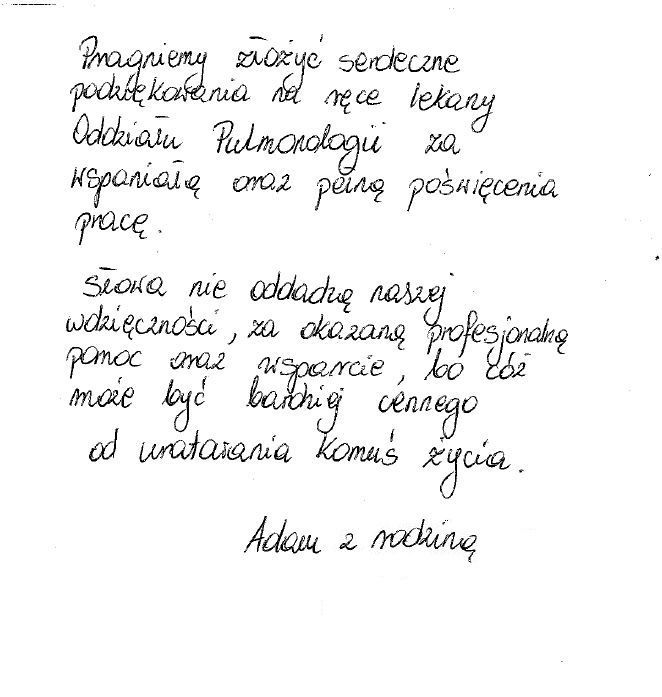 Pragniemy złożyć serdeczne
podziękowania na ręce lekarzy
Oddziału Pulmonologii za
wspaniałą oraz pełną poświęcenia
pracę.
Słowa nie oddadzą naszej
wdzięczności, za okazaną profesjonalną
pomoc oraz wsparcie, bo cóż
może być bardziej cennego
od uratowania komuś życia.
Adam z rodziną